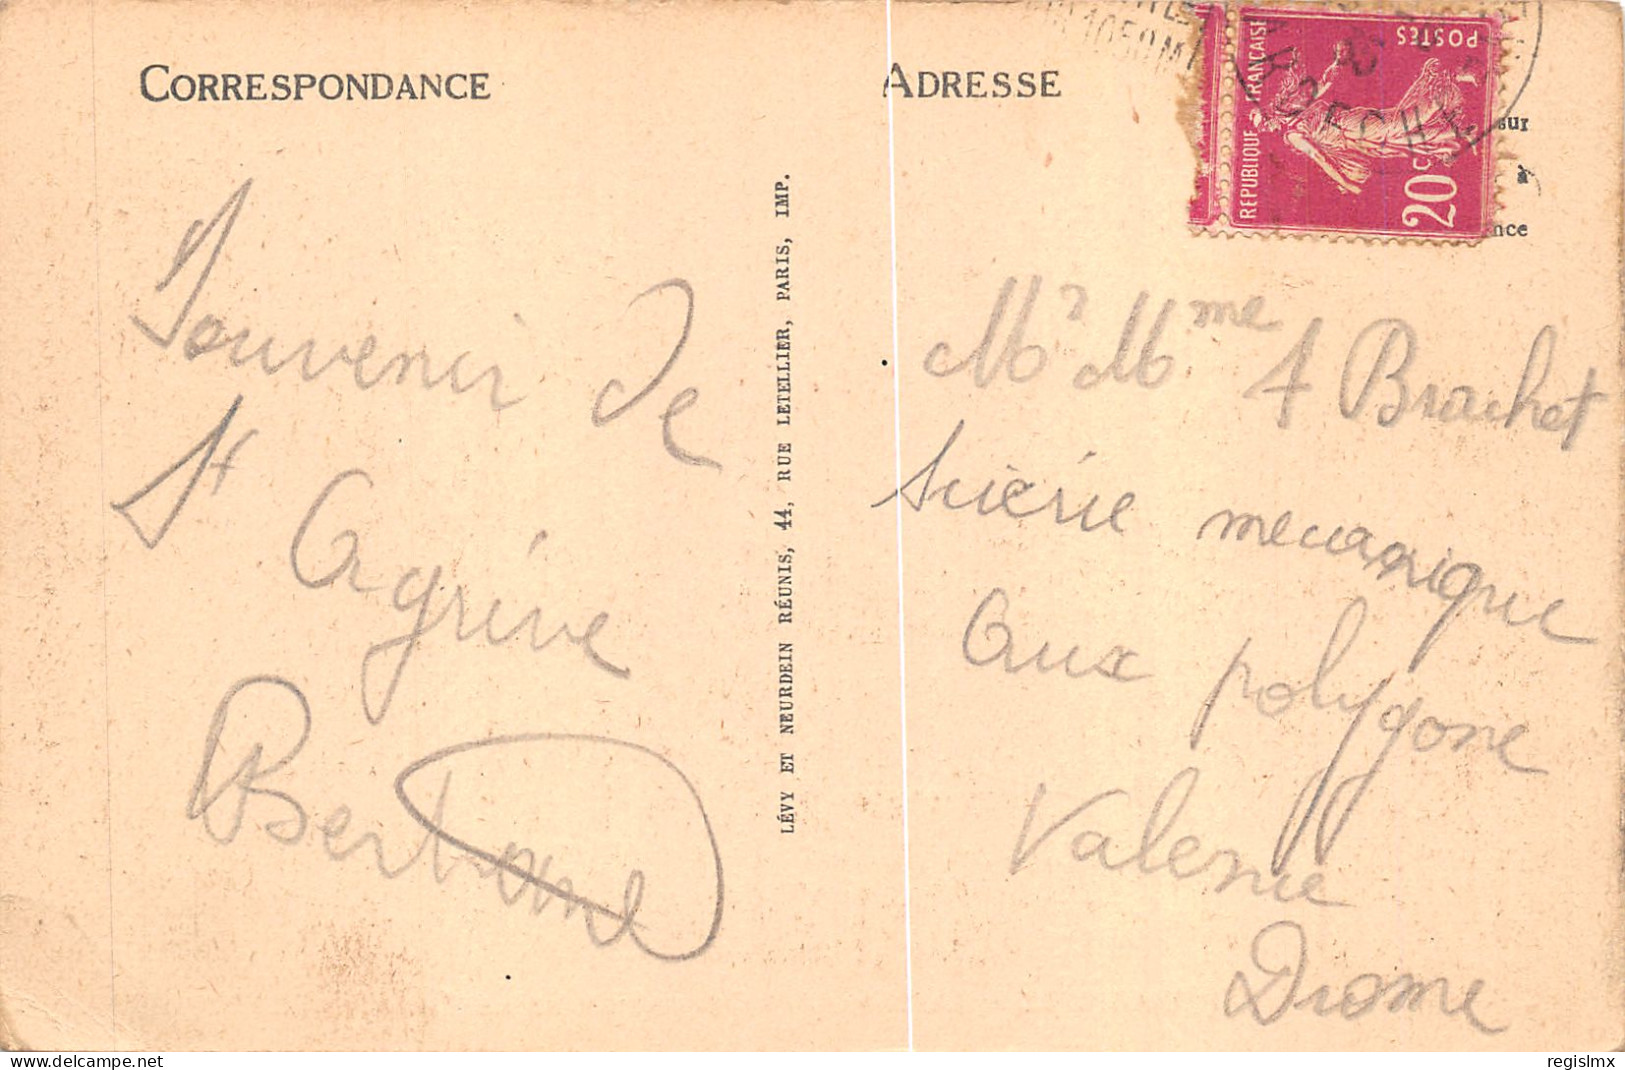 CORRESPONDANCE
ADRESSE
1050 M
ARDECHE
POSTES
REPUBLIQUE FRANÇAISE
20 C
sur
à
nce
Souvenir de
St Agrève
Bertrand
LÉVY ET NEURDEIN RÉUNIS, 44, RUE LETELLIER, PARIS, IMP.
Mr Mme A Brachet
Scièrie mecanique
Aux polygone
Valence
Drome
regislmx